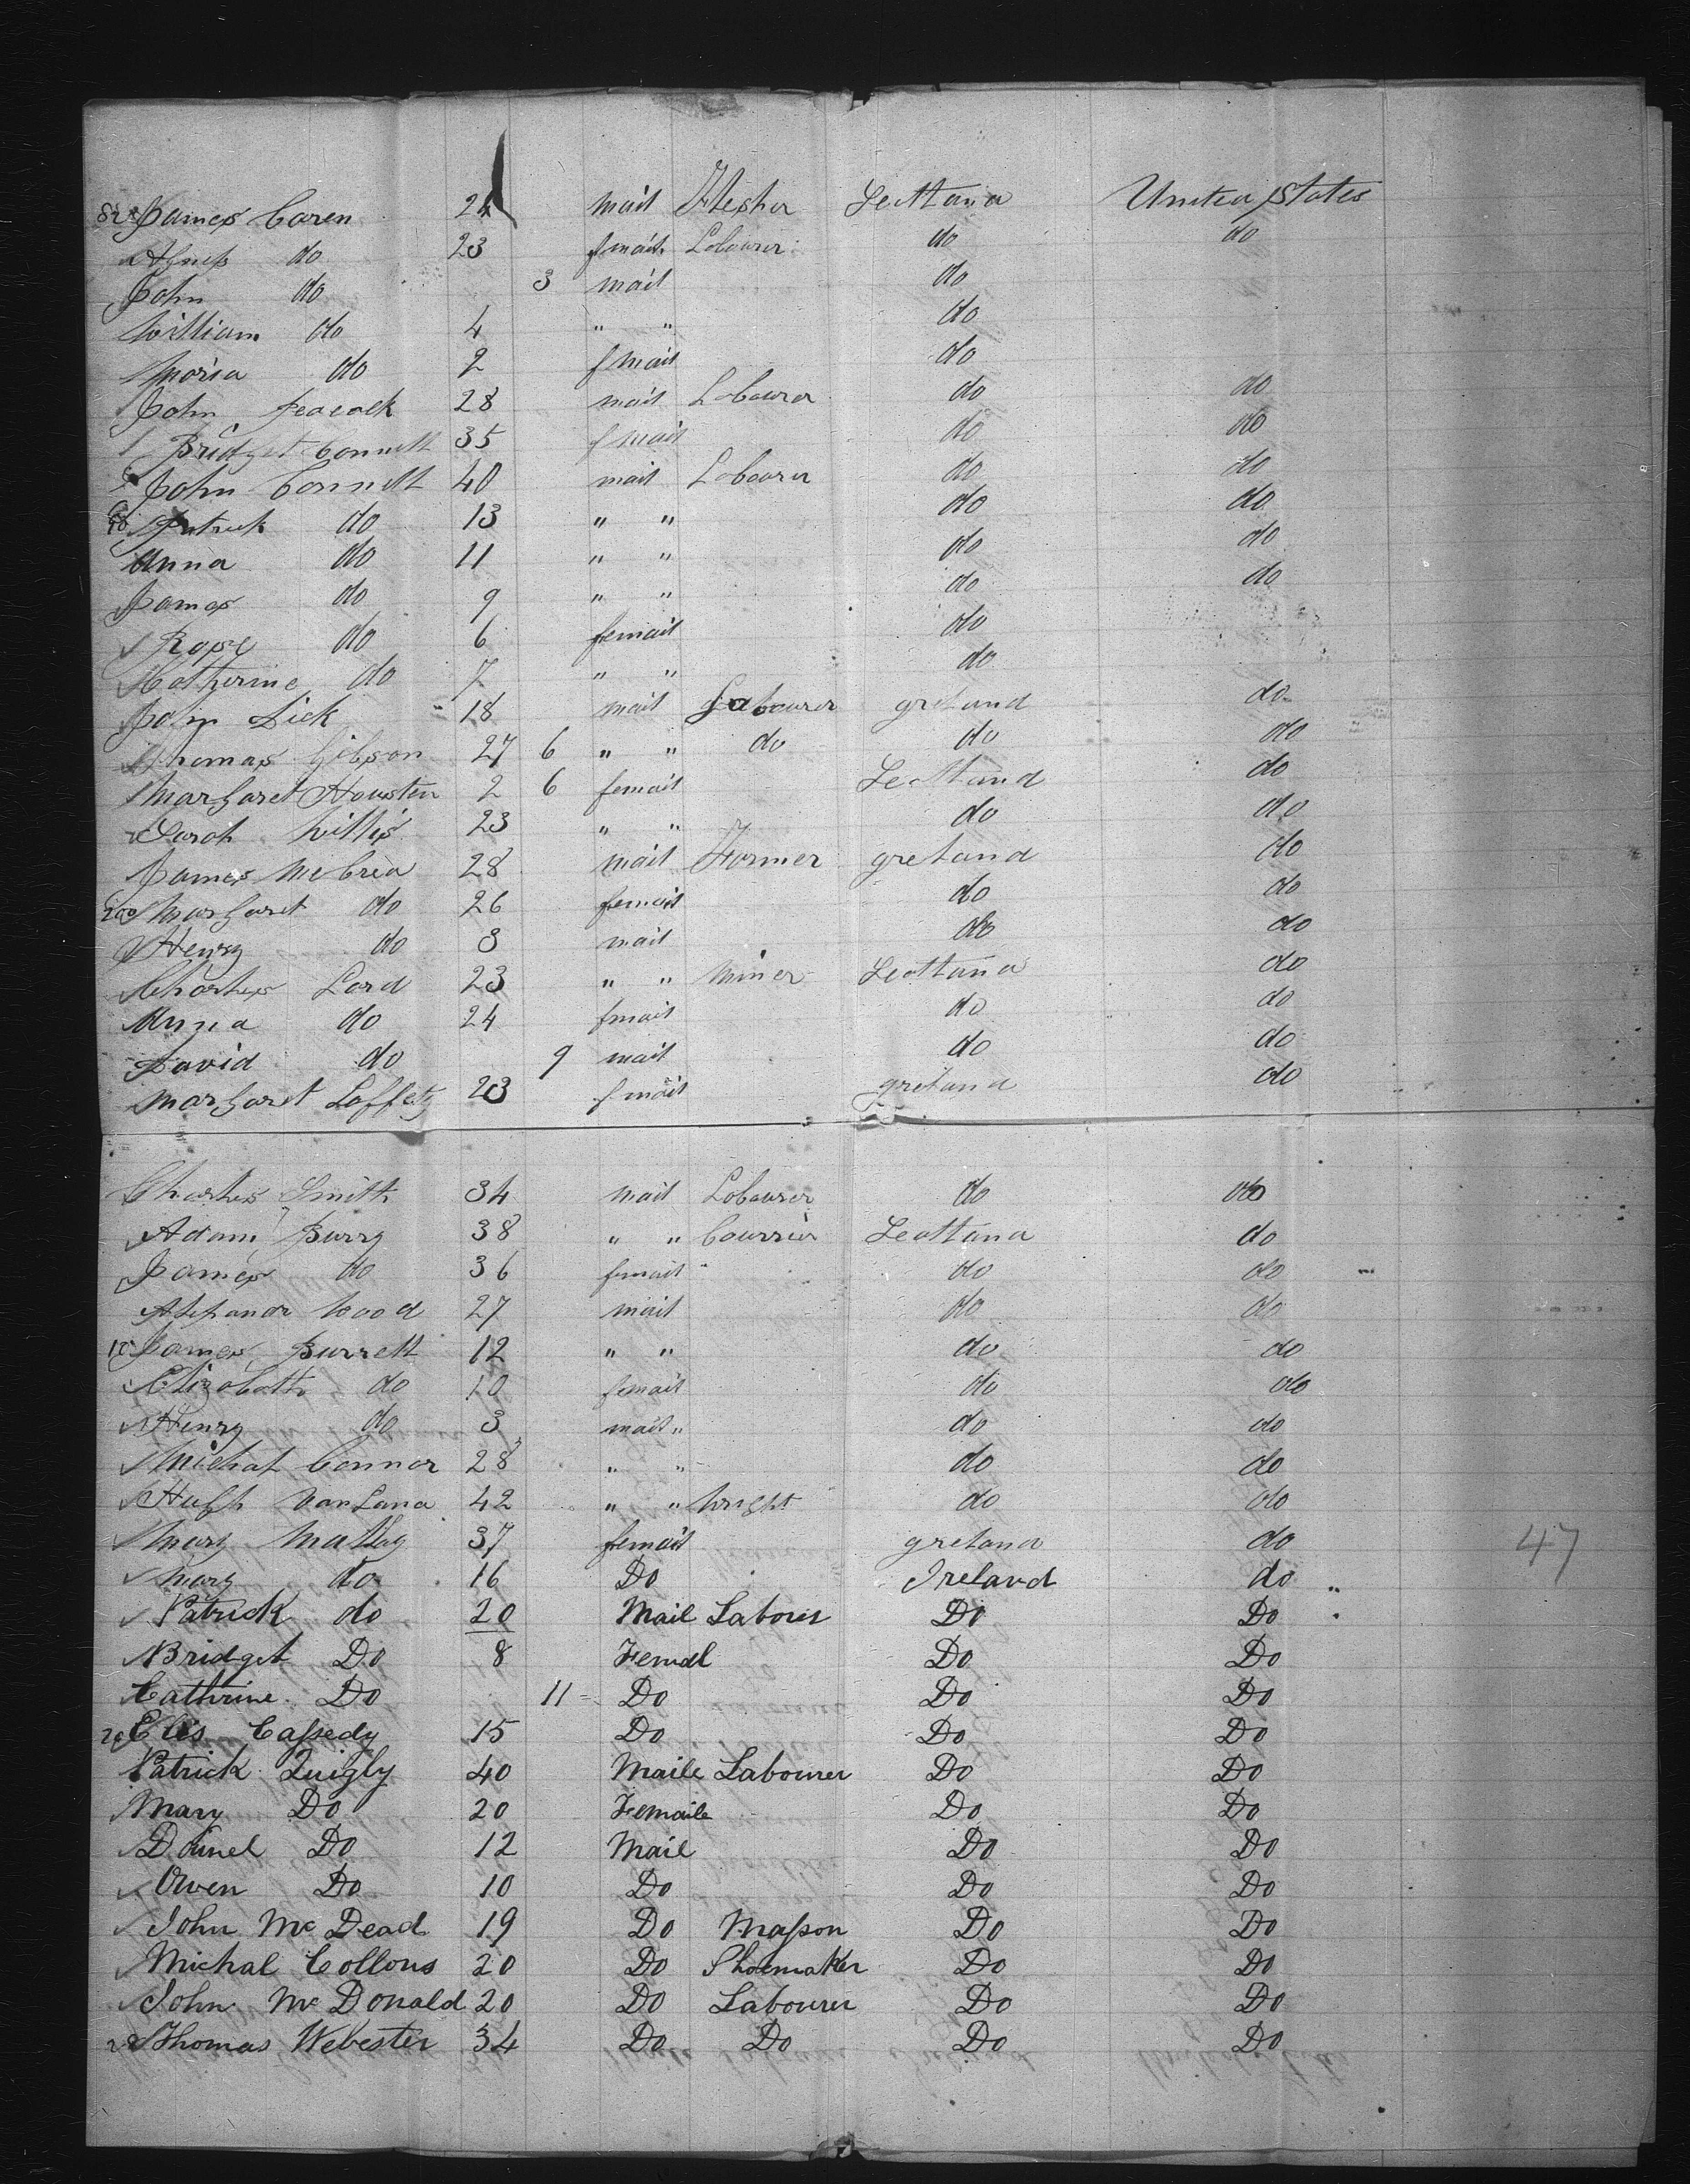 James Caren 24 mail Flesher Scottand United States
Agness do 23 fmail Labourer do do
John do 3 mail do
William do 4 " " do
Moria do 2 fmail do
John Peacock 28 mail Labourer do do
Bridget Connell 35 fmail do do
John Connell 40 mail Labourer do do
Patrick do 13 " " do do
Anna do 11 " " do do
James do 9 " " do do
Rose do 6 femail do
Catherine do 7 " " do
John Dick 18 mail Labourer Ireland do
Thomas Gibson 27 6 " " do do do
Margaret Houston 2 6 femail Scotland do
Sarah Willis 23 " " do do
James McCrea 28 mail Farmer Ireland do
Margaret do 26 femail do do
Henry do 3 mail do do
Charles Lord 23 " " Miner Scottand do
Anna do 24 fmail do do
David do 9 mail do do
Margaret Laffety 23 fmail Ireland do
Charles Smith 34 mail Labourer do do
Adam Burry 38 " " Courrier Scottand do
James do 36 femail do do
Alexander Wood 27 mail do do
James Burrell 12 " " do do
Elizabeth do 10 femail do do
Henry do 3 mail " do do
Michal Connor 28 " " do do
Hugh 42 " " Wright do do
Mary 37 femail Ireland do
47
Mary do 16 Do Ireland do "
Patrick do 20 Mail Labourer Do Do "
Bridget Do 8 Femal Do Do
Cathrine Do 11 Do Do Do
Elis Cassedy 15 Do Do Do
Patrick Quigly 40 Maile Labourer Do Do
Mary Do 20 Femaile Do Do
Dainel Do 12 Mail Do Do
Owen Do 10 Do Do Do
John Mc Dead 19 Do Masson Do Do
Michal Collons 20 Do Shoemaker Do Do
John Mc Donald 20 Do Labourer Do Do
Thomas Webester 34 Do Do Do Do